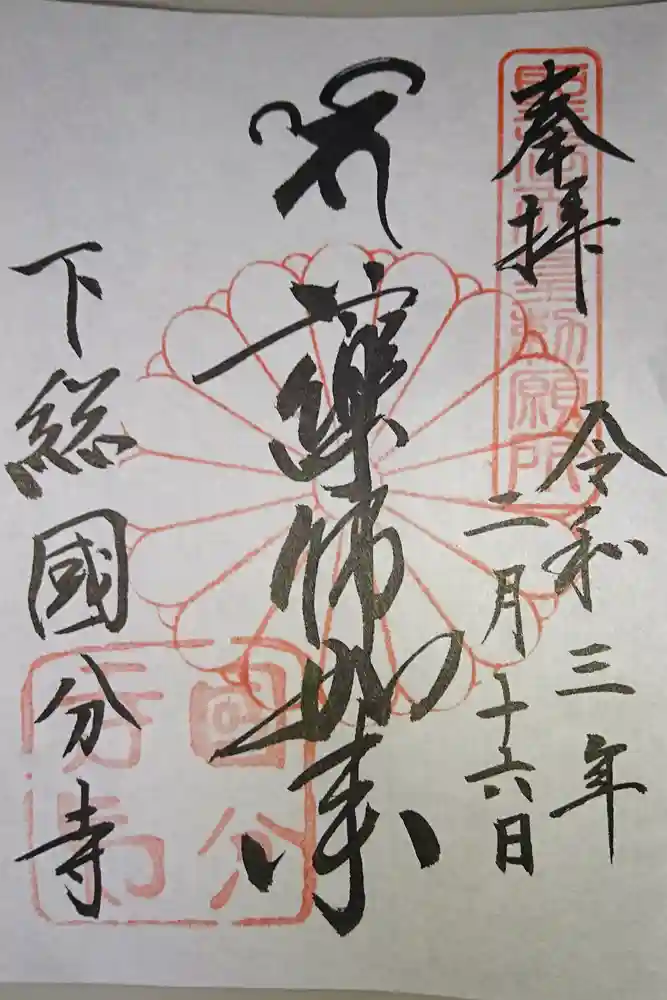 奉拝
令和三年
二月十六日
薬師如来
下総國分寺
勅願所